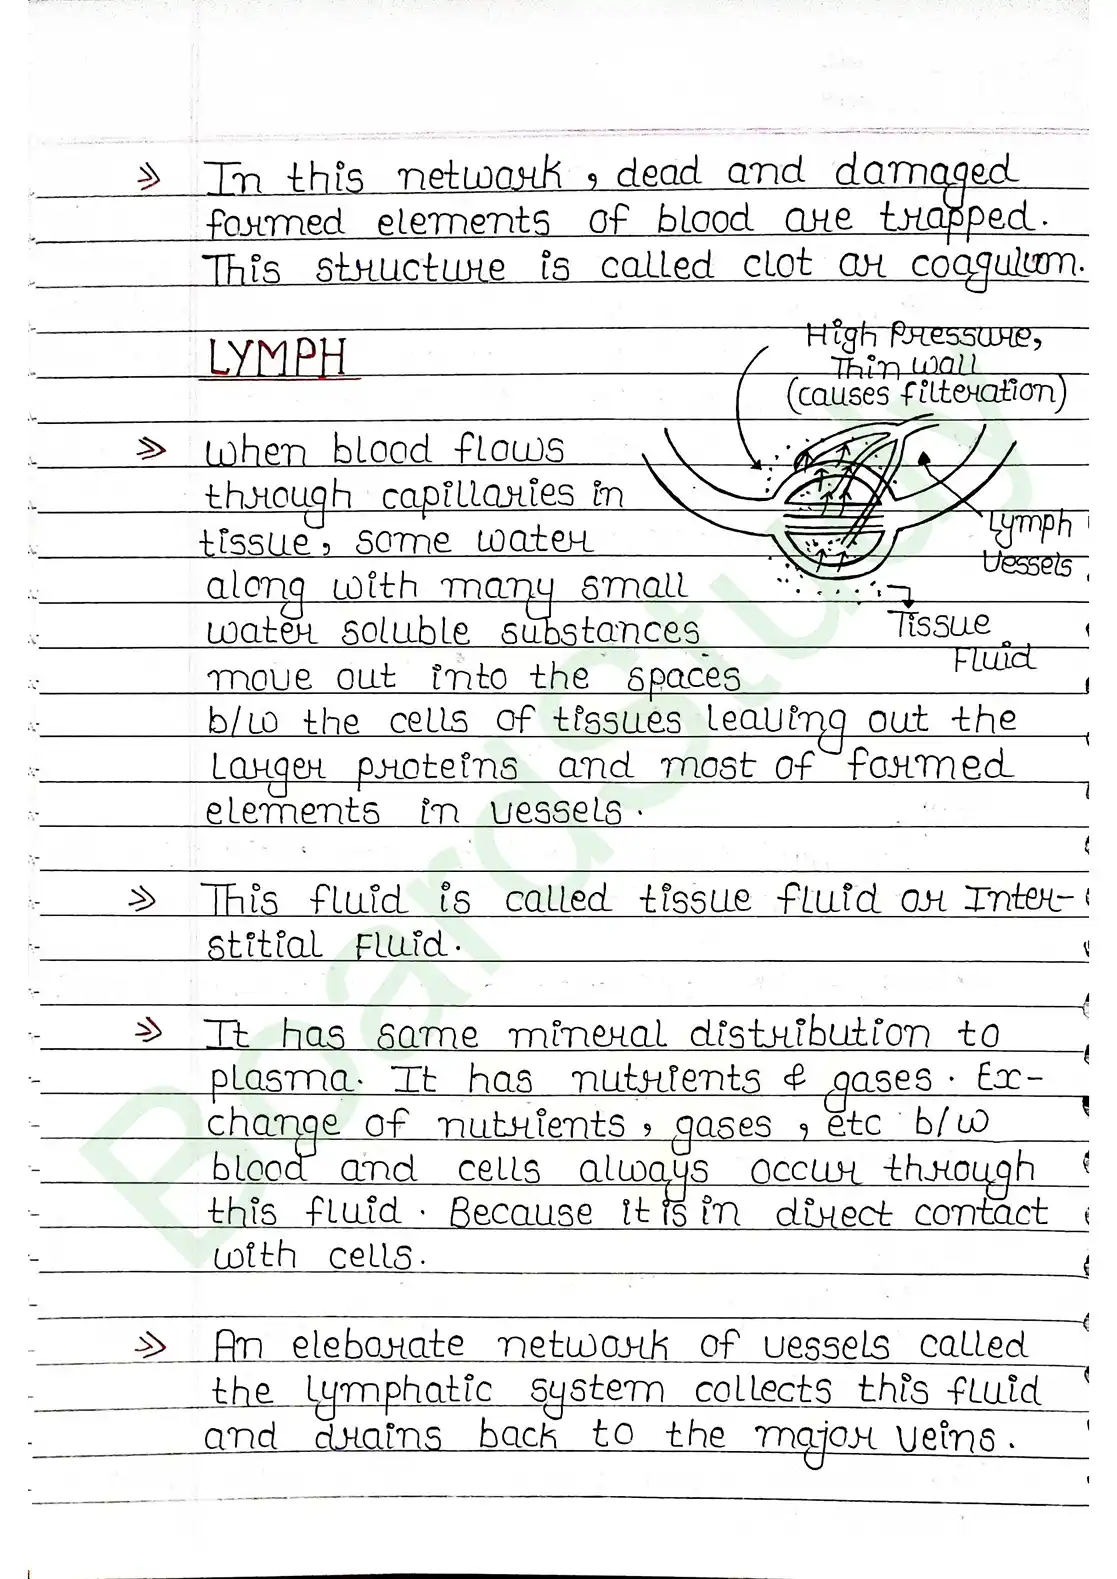 ≫ In this network, dead and damaged
formed elements of blood are trapped.
This structure is called clot or coagulum.
LYMPH
High Pressure,
Thin wall
(causes filteration)
Lymph
Vessels
Tissue
Fluid
≫ When blood flows
through capillaries in
tissue, some water
along with many small
water soluble substances
move out into the spaces
b/w the cells of tissues leaving out the
Larger proteins and most of formed
elements in vessels.
≫ This fluid is called tissue fluid or Inter-
stitial Fluid.
≫ It has same mineral distribution to
plasma. It has nutrients & gases. Ex-
change of nutrients, gases, etc b/w
blood and cells always occur through
this fluid. Because it is in direct contact
with cells.
≫ An eleborate network of vessels called
the lymphatic system collects this fluid
and drains back to the major veins.
BoardStudy